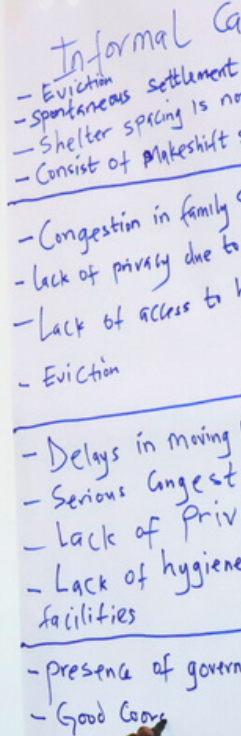 Informal Ca
- Eviction
- Spontaneous settlement
- Shelter spacing is no
- Consist of Makeshift
- Congestion in family
- lack of privacy due to
- Lack of access to
- Eviction
- Delays in moving
- Serious Congest
- Lack of Priv
- Lack of hygiene
facilities
- presence of govern
- Good Coord